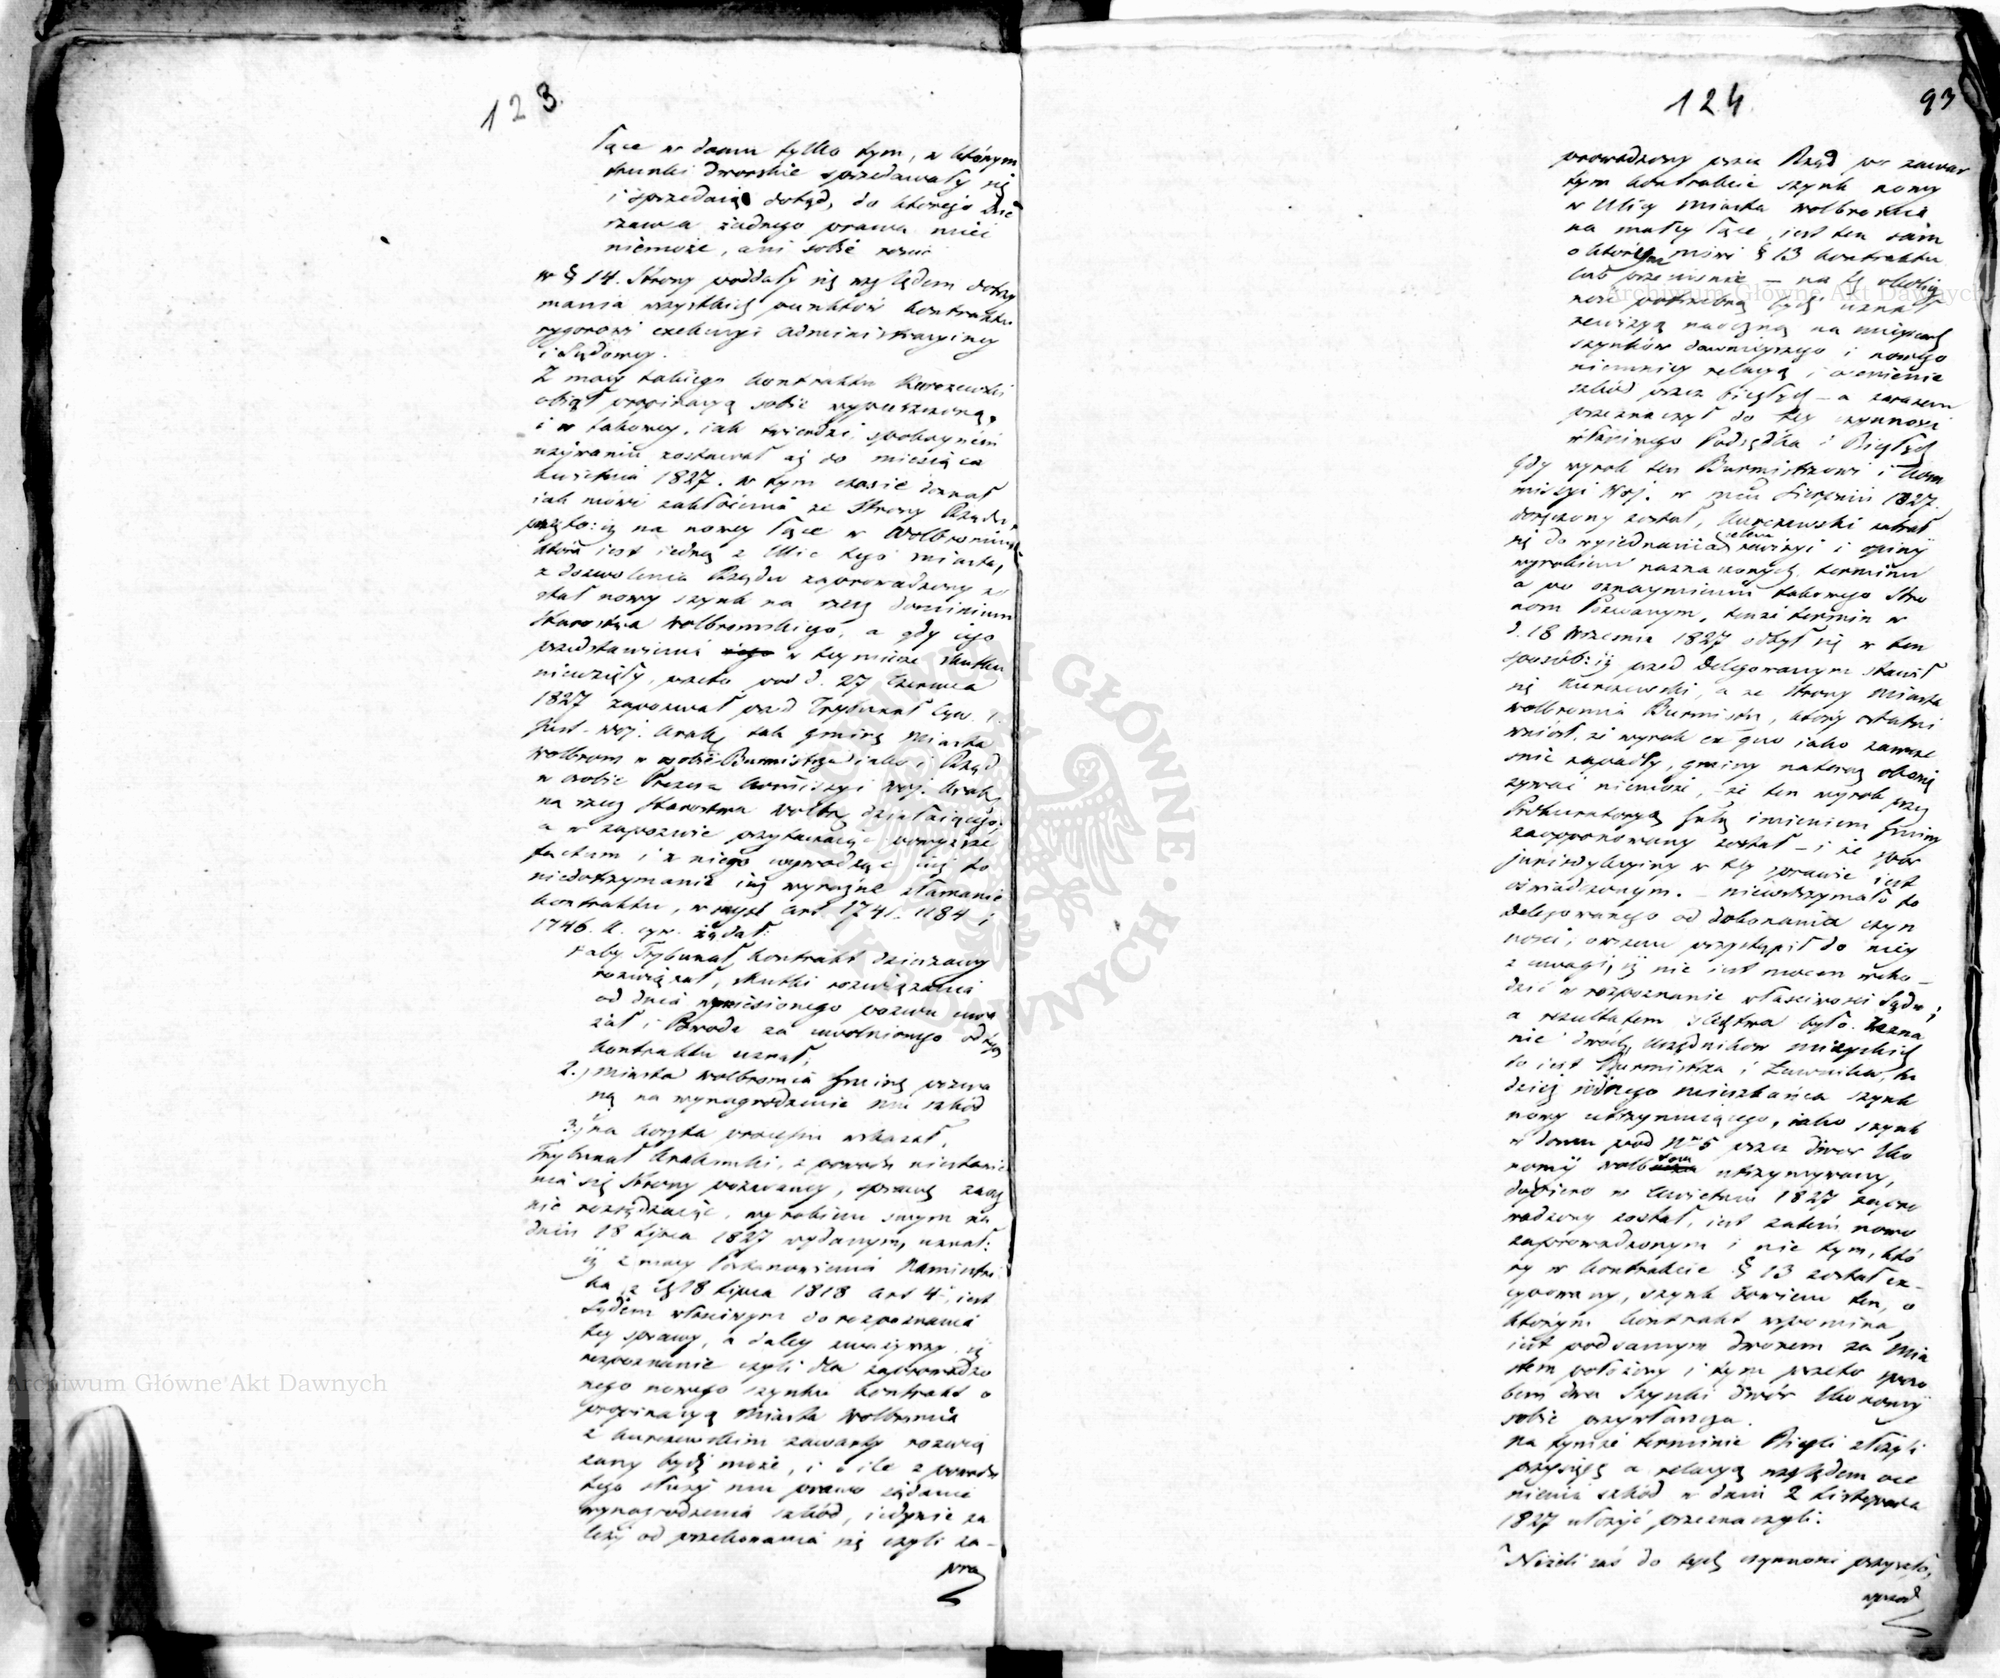 123.
łące w domu tylko tym, w którym
trunki dworskie sprzedawały się
i sprzedaią dotąd, do którego Dzier
żawca żadnego prawa mieć
niemoże, ani sobie rości
w § 14. Strony poddały się względem dotrzy
mania wszystkich punktów kontraktu
rygorowi exekucyi administracyiney
i Sądowey.
Z mocy takiego kontraktu Kurczewski
obiął propinacyą sobie wypuszczoną,
i w takowey, iak twierdzi, spokoynem
używaniu zostawał aż do miesiąca
kwietnia 1827. w tym czasie doznał
iak mówi zakłócenia ze Strony Rządu
przez to: iż na nowey łące w Wolbromiu
która iest iedną z Ulic tego miasta,
z dozwolenia Rządu zaprowadzony zo
stał nowy szynk na rzecz dominium
Starostwa Wolbromskiego, a gdy iego
przedstawienia w tey mierze skutku
niewzięły, przeto pod d. 27 Czerwca
1827 zapozwał przed Trybunał Cyw. 1.
Inst. Woj. Krak. tak gminę Miasta
Wolbrom w osobie Burmistrza iako i Rząd
w osobie Prezesa Kommissyi Woj. Krak.
na rzecz Starostwa Wolbr. działaiącego;
a w zapozwie przytaczaiąc powyższe
factum i z niego wywodząc iuż to
niedotrzymanie iuż wyraźne złamanie
kontraktu, w myśl art. 1741. 1184 i
1746. K. cyw. żądał:
aby Trybunał kontrakt dzierżawy
rozwiązał, skutki rozwiązania
od dnia wyniesionego pozwu uwa
żał i Powoda za uwolnionego od tego
kontraktu uznał,
2., Miasta Wolbromia Gminę pozwa
ną na wynagrodzenie mu szkód
3., na koszta processu wskazał.
Trybunał Krakowski, z powodu niestawie
nia się Strony pozwaney, sprawę zaocz
nie rozsądzaiąc, wyrokiem swym na
dniu 18 Lipca 1827 wydanym, uznał:
iż z mocy Postanowienia Namiestni
ka z d. 18 Lipca 1818 art 4., iest
Sądem właściwym do rozpoznania
tey sprawy, a daley zważywszy, iż
rozpoznanie czyli dla zaprowadzo
nego nowego szynku kontrakt o
propinacyą Miasta Wolbromia
z Kurczewskim zawarty rozwią
zany bydź może, i o ile z powodu
tego służy mu prawo żądanie
wynagrodzenia szkód, iedynie za
leży od przekonania się czyli za-
pro
124.
93
prowadzony przez Rząd po zawar
tym kontrakcie szynk nowy
w Ulicy Miasta Wolbromia
na małey łące, iest ten sam
o którym mówi § 13 kontraktu
lub przeciwnie — na tę okolicz
ność potrzebną bydź uznał
rewizyą naoczną na mieyscach
szynków dawnieyszego i nowego
niemniey relacyą i ocenienie
szkód przez biegłych — a zarazem
przeznaczył do tey czynności
właściwego Podsędka i Biegłych
Gdy wyrok ten Burmistrzowi i Kom
missyi Woj. w mcu Sierpniu 1827.
doręczony został, Kurczewski udał
się do wyiednania celem rewizyi i opinij
wyrokiem naznaczonych terminu
a po oznaymieniu takowego Stro
nom Pozwanym, tenże termin w
d. 18 Września 1827 odbył się w ten
sposób: iż przed Delegowanym stawił
się Kurczewski, a ze strony Miasta
Wolbromia Burmistrz, który ostatni
wniósł, że wyrok ex quo iako zawcze
śnie zapadły, gminy naten obowią
zywać niemoże, że ten wyrok przez
Prokuratoryą Jlną imieniem Gminy
zaopponowany został — i że spór
jurisdykcyiny w tey sprawie iest
oświadczonym. — niewstrzymało to
Delegowanego od dokonania czyn
ności, owszem przystąpił do niey
z uwagi, iż nie iest mocen wcho-
dzić w rozpoznanie właściwości Sądu;
a rezultatem śledztwa było zezna
nie dwóch Urzędników mieyskich
to iest Burmistrza i Ławnika, tu
dzież iednego mieszkańca szynk
nowy utrzymuiącego, iako szynk
w domu pod Nrm 5 przez dwór Eko
nomij Wolbrom utrzymywany,
dopiero w kwietniu 1827 zapro
wadzony został, iest zatem nowo
zaprowadzonym i nie tym, któ
ry w kontrakcie § 13 został ex-
cypowany, szynk bowiem ten, o
którym kontrakt wspomina,
iest pod samym dworem za Mia
stem położony i tym przeto spos
bem dwa Szynki dwór Ekonomij
sobie przywłaszcza.
Na tymże terminie Biegli złożyli
przysięgę a relacyą względem oce
nienia szkód w dniu 2 Listopada
1827 złożyć przeznaczyli.
Nieżeli zaś do tych czynności przyszło,
wprzód
Archiwum Główne Akt Dawnych
Archiwum Główne Akt Dawnych